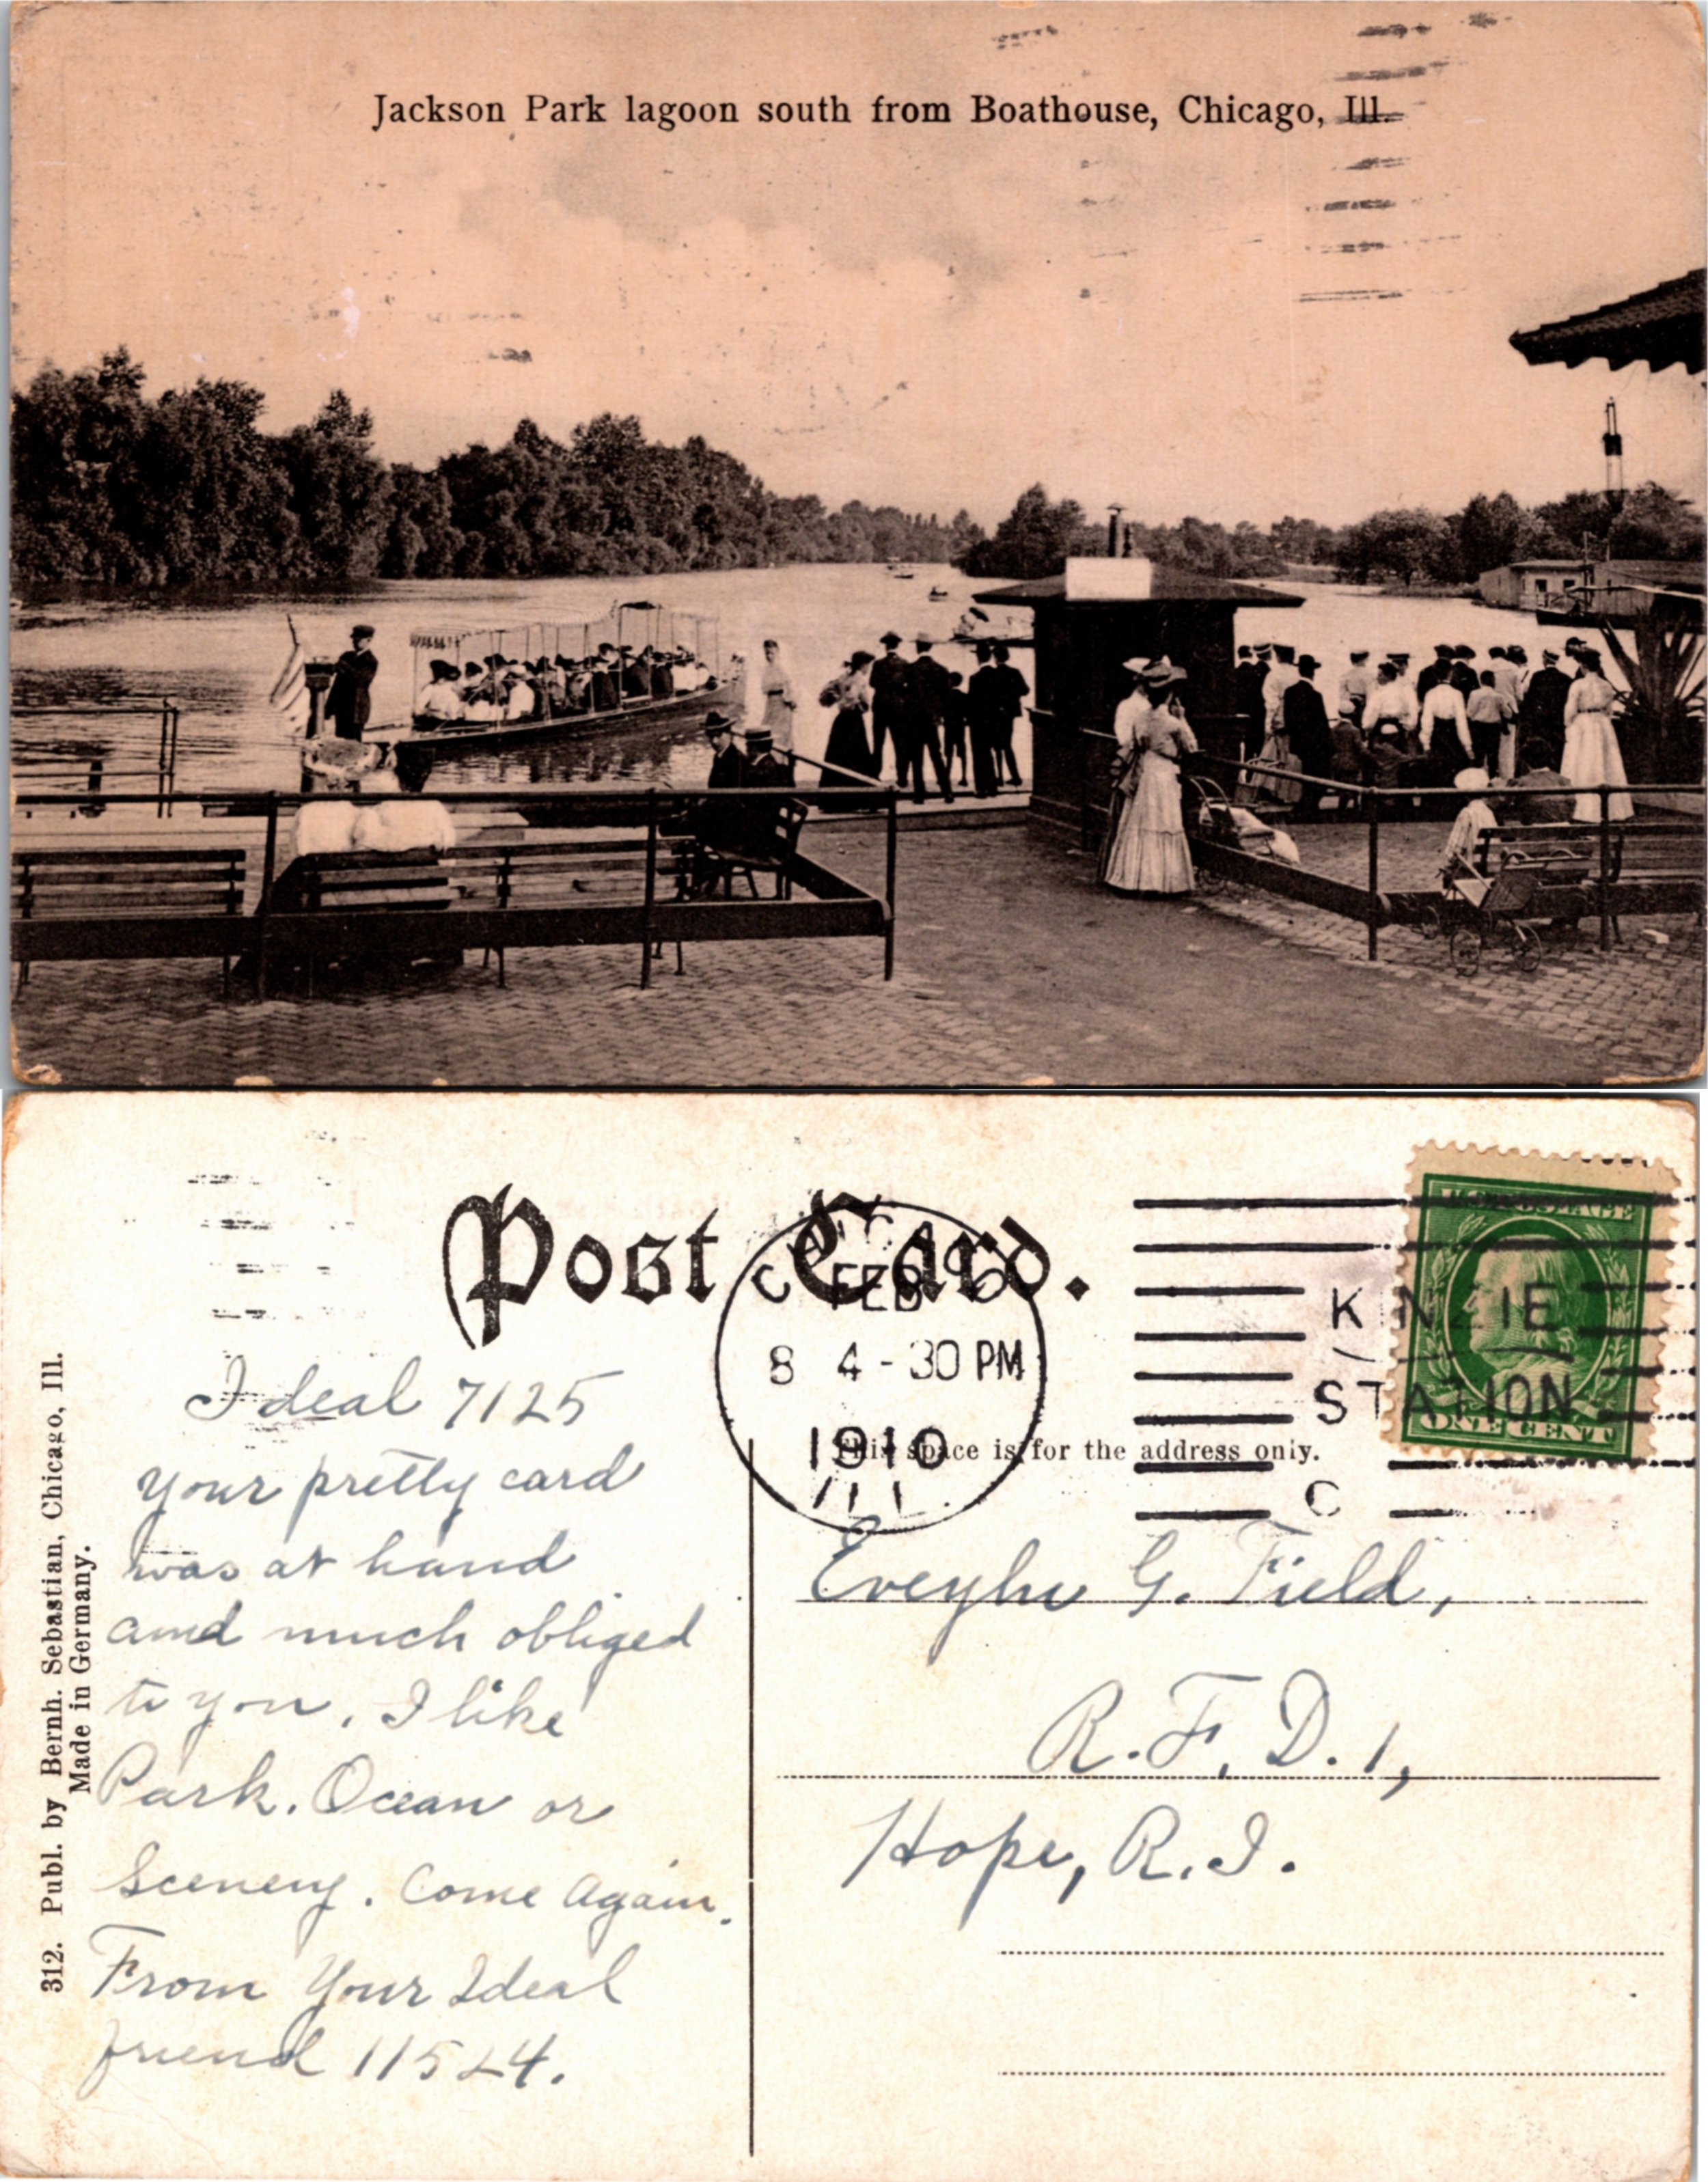 Jackson Park lagoon south from Boathouse, Chicago, Ill.
Post Card.
FEB
8 4-30 PM
1910
ILL.
KINZIE
STATION
C
ONE CENT
This space is for the address only.
312. Publ. by Bernh. Sebastian, Chicago, Ill.
Made in Germany.
Ideal 7125
your pretty card
was at hand
and much obliged
to you. I like
Park. Ocean or
Scenery. Come Again.
From Your Ideal
friend 11524.
G. Field,
R.F.D. 1,
Hope, R.I.